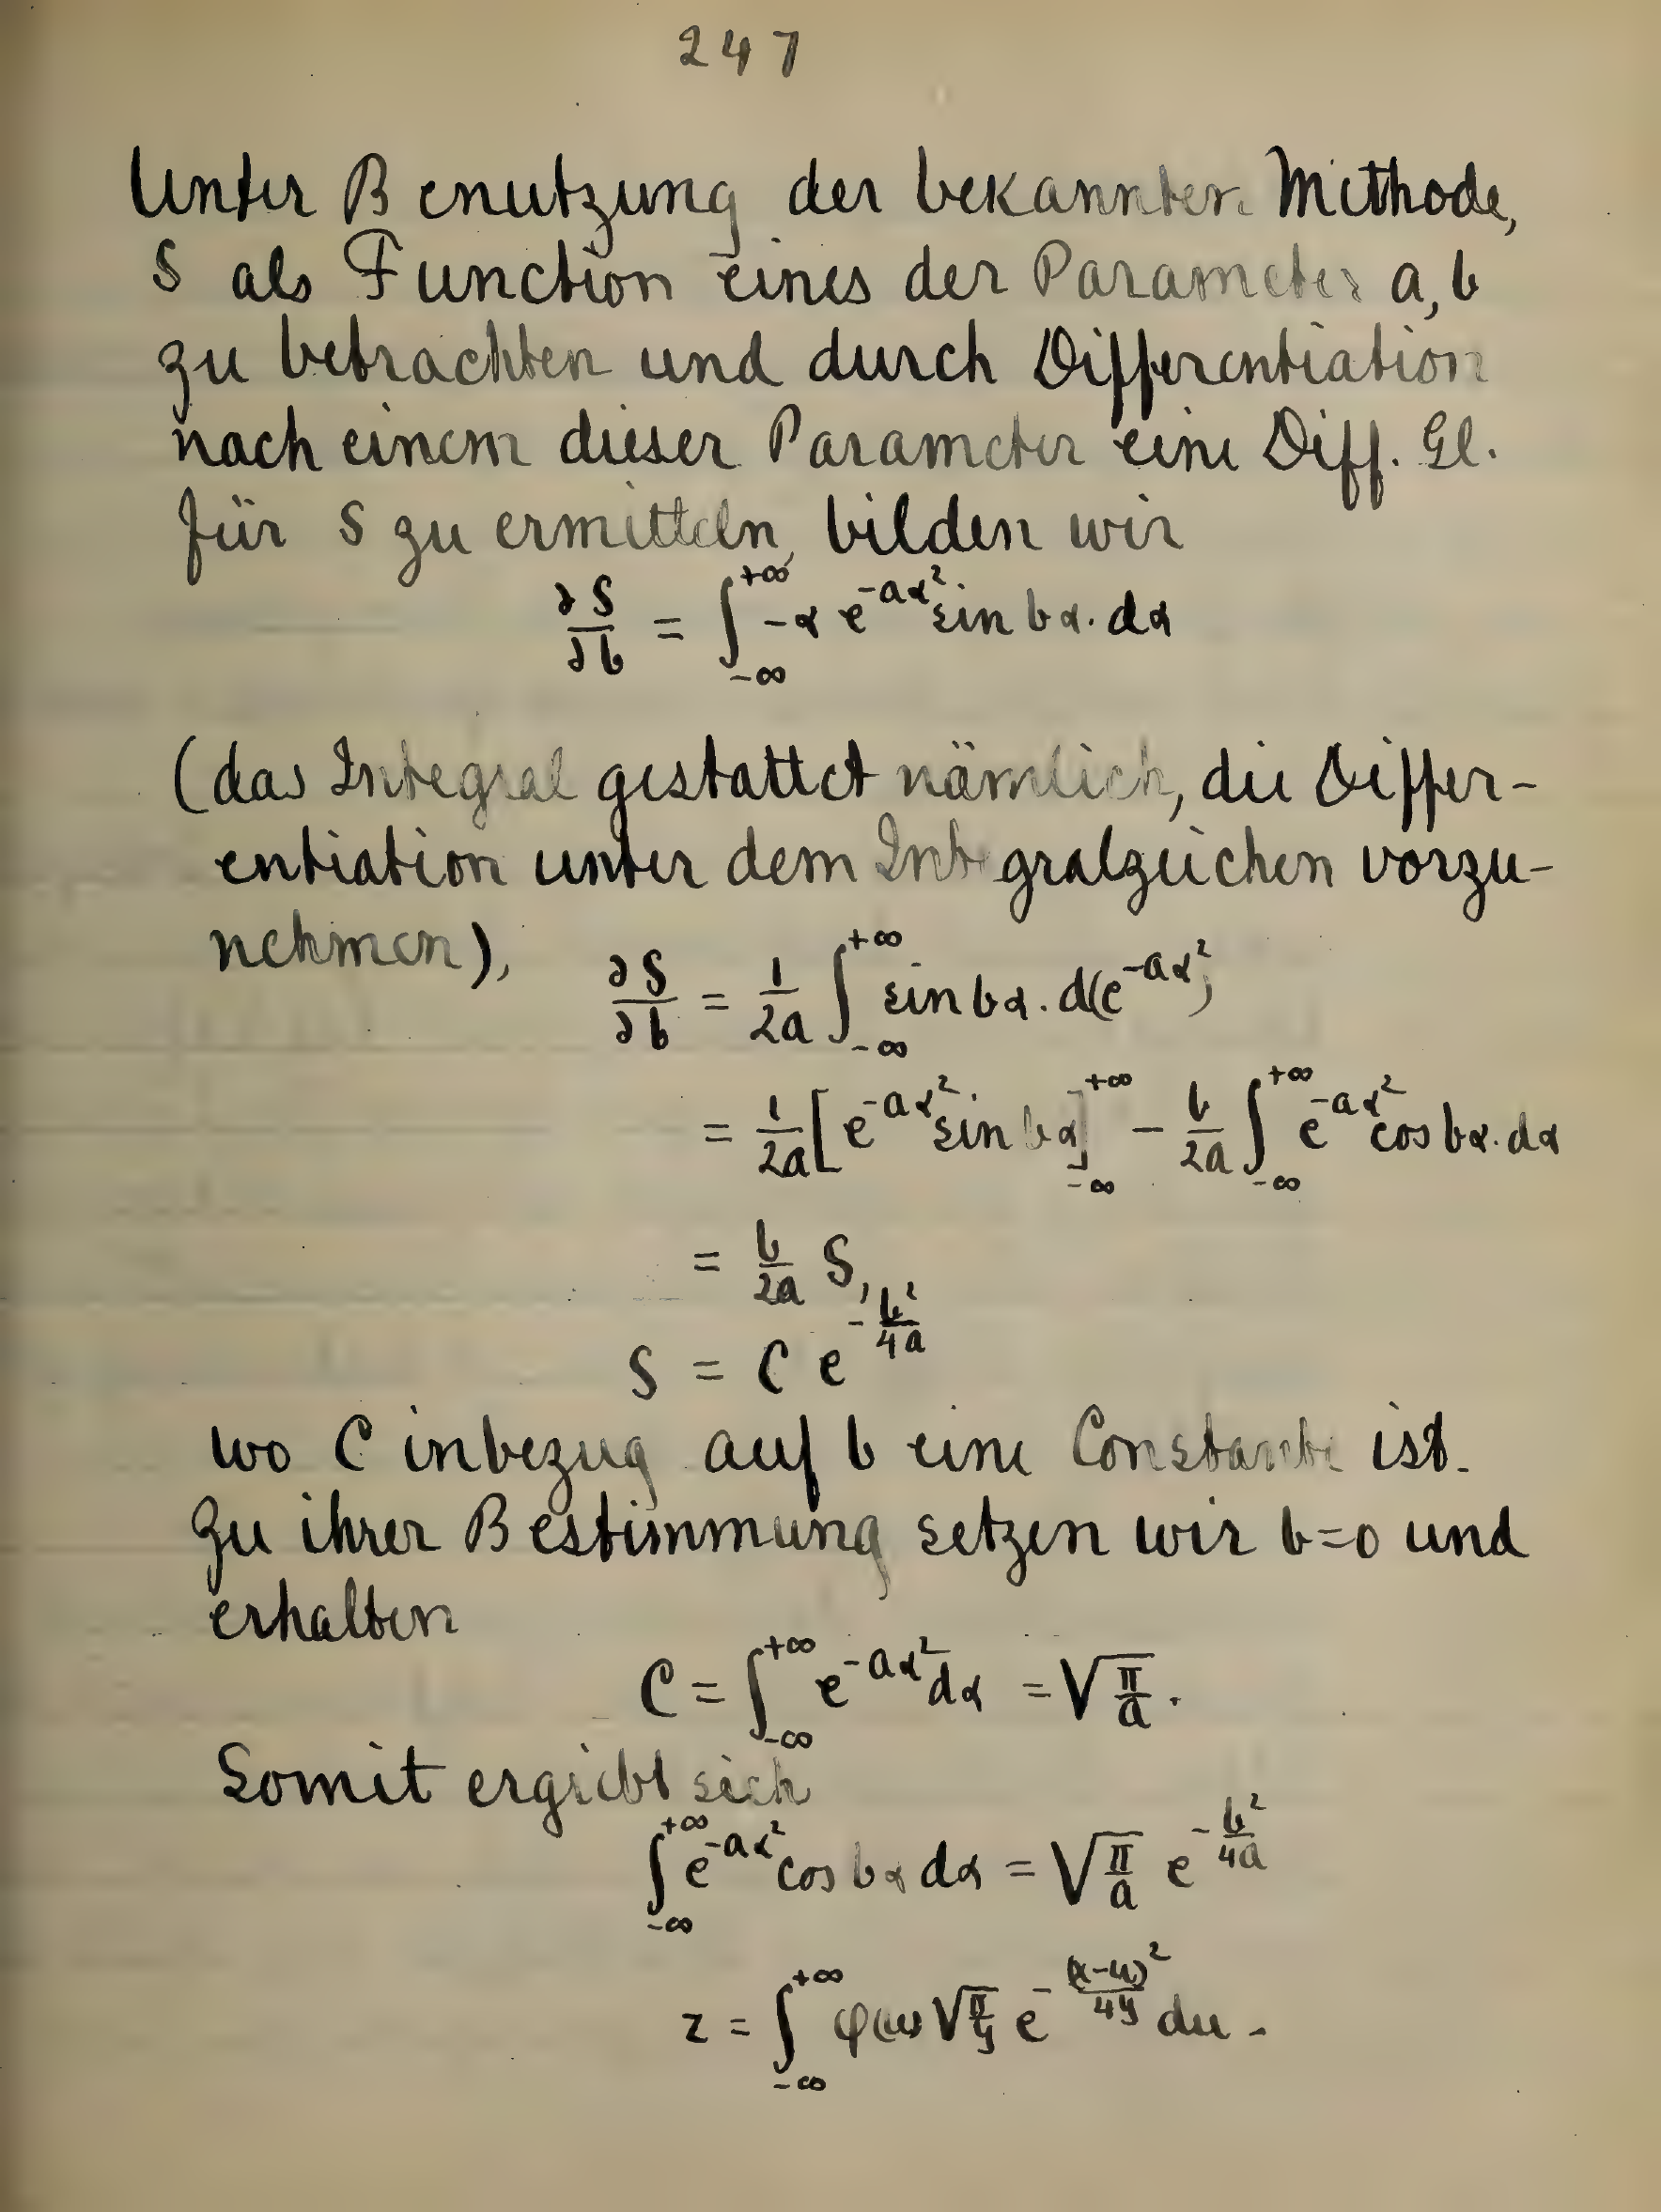 247
Unter Benutzung der bekannten Methode,
S als Function eines der Parameter a, b
zu betrachten und durch Differentiation
nach einem dieser Parameter eine Diff. Gl.
für S zu ermitteln, bilden wir
∂S/∂b = ∫_{-∞}^{+∞} -α e^{-aα²} sin bα. dα
(das Integral gestattet nämlich, die Differ-
entiation unter dem Integralzeichen vorzu-
nehmen),
∂S/∂b = 1/2a ∫_{-∞}^{+∞} sin bα. d(e^{-aα²})
= 1/2a [e^{-aα²} sin bα]_{-∞}^{+∞} - b/2a ∫_{-∞}^{+∞} e^{-aα²} cos bα. dα
= b/2a S,
S = C e^{-b²/4a}
wo C inbezug auf b eine Constante ist.
Zu ihrer Bestimmung setzen wir b=0 und
erhalten
C = ∫_{-∞}^{+∞} e^{-aα²} dα = √π/a.
Somit ergiebt sich
∫_{-∞}^{+∞} e^{-aα²} cos bα dα = √π/a e^{-b²/4a}
z = ∫_{-∞}^{+∞} φ(u) √π/y e^{-(x-u)²/4y} du.